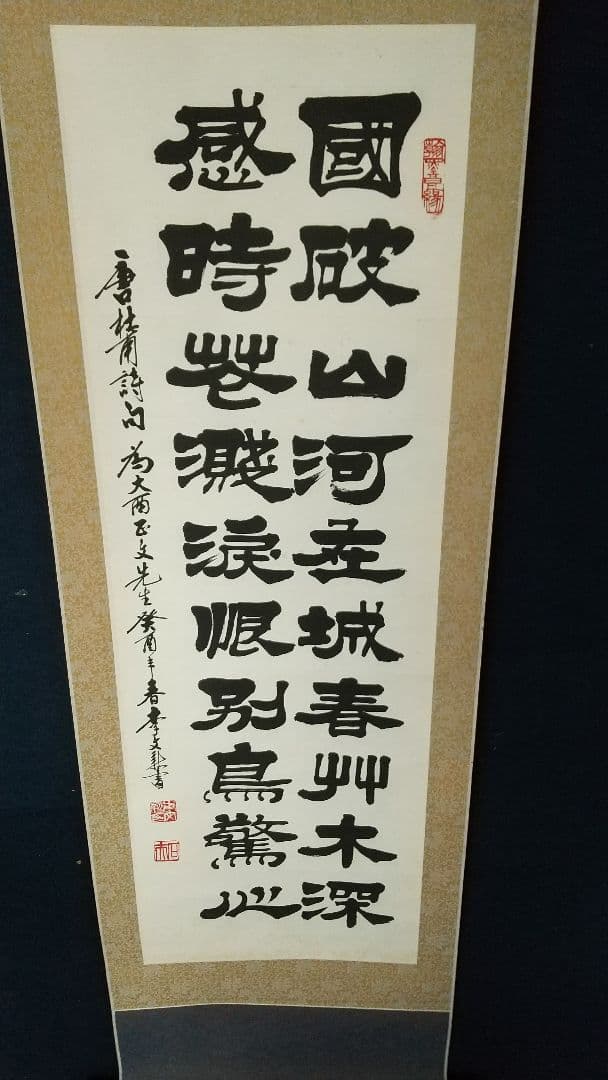 國破山河在城春艸木深
感時花濺淚恨別鳥驚心
唐杜甫詩句 為大酉正文先生 癸酉年春 李文 書